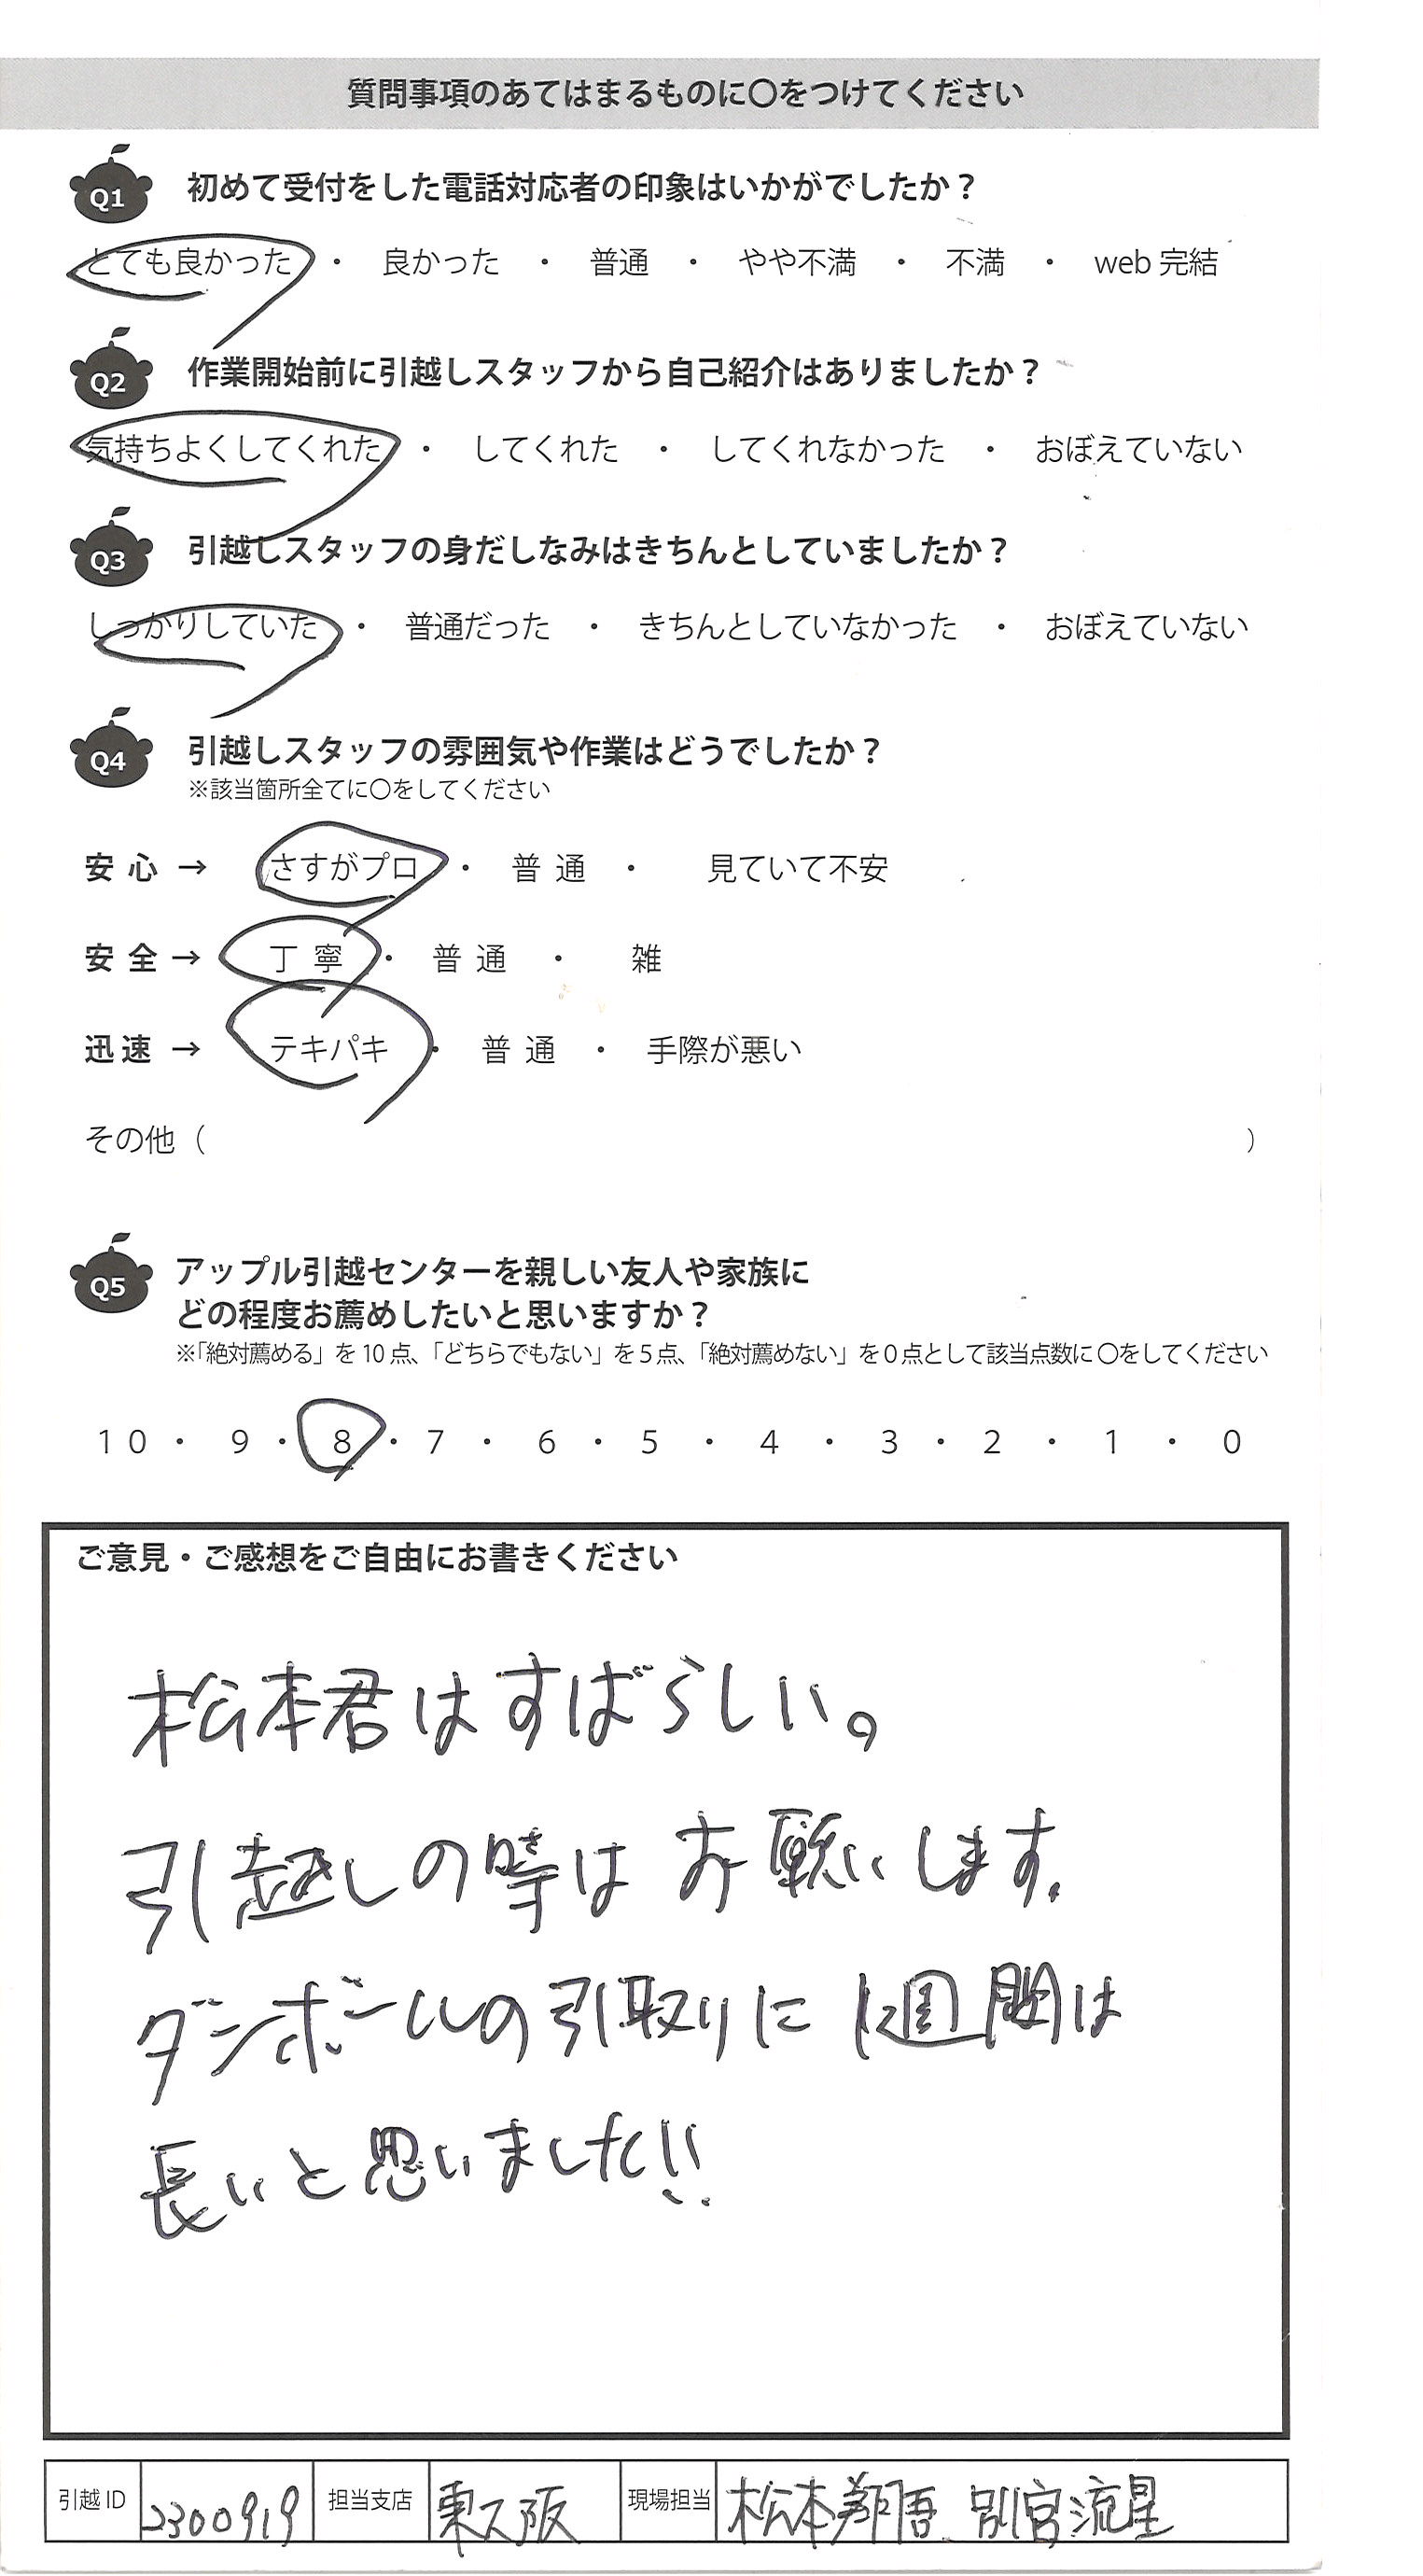 質問事項のあてはまるものに〇をつけてください
Q1 初めて受付をした電話対応者の印象はいかがでしたか？
とても良かった ・ 良かった ・ 普通 ・ やや不満 ・ 不満 ・ web 完結
Q2 作業開始前に引越しスタッフから自己紹介はありましたか？
気持ちよくしてくれた ・ してくれた ・ してくれなかった ・ おぼえていない
Q3 引越しスタッフの身だしなみはきちんとしていましたか？
しっかりしていた ・ 普通だった ・ きちんとしていなかった ・ おぼえていない
Q4 引越しスタッフの雰囲気や作業はどうでしたか？
※該当箇所全てに〇をしてください
安心 → さすがプロ ・ 普通 ・ 見ていて不安
安全 → 丁寧 ・ 普通 ・ 雑
迅速 → テキパキ ・ 普通 ・ 手際が悪い
その他（ ）
Q5 アップル引越センターを親しい友人や家族に
どの程度お薦めしたいと思いますか？
※「絶対薦める」を 10 点、「どちらでもない」を 5 点、「絶対薦めない」を 0 点として該当点数に 〇をしてください
10 ・ 9 ・ 8 ・ 7 ・ 6 ・ 5 ・ 4 ・ 3 ・ 2 ・ 1 ・ 0
ご意見・ご感想をご自由にお書きください
松本君はすばらしい。
引越しの時はお願いします。
ダンボールの引取りに1週間は
長いと思いました!!
引越 ID 2300919 担当支店 東大阪 現場担当 松本翔吾 別宮流星